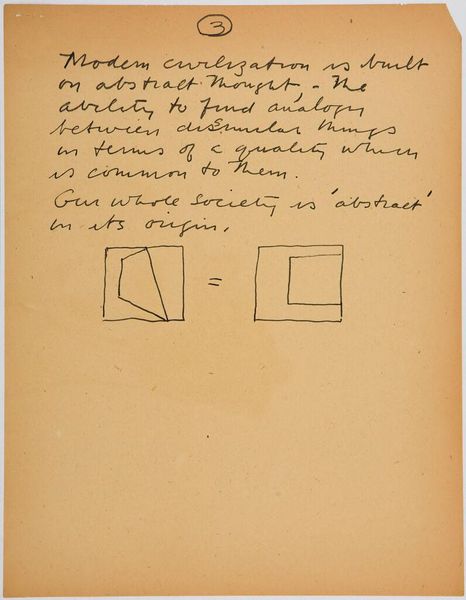 3
Modern civilization is built
on abstract thought, - The
ability to find analogy
between dissimilar things
in terms of a quality which
is common to them.
Our whole society is 'abstract'
in its origin.
=